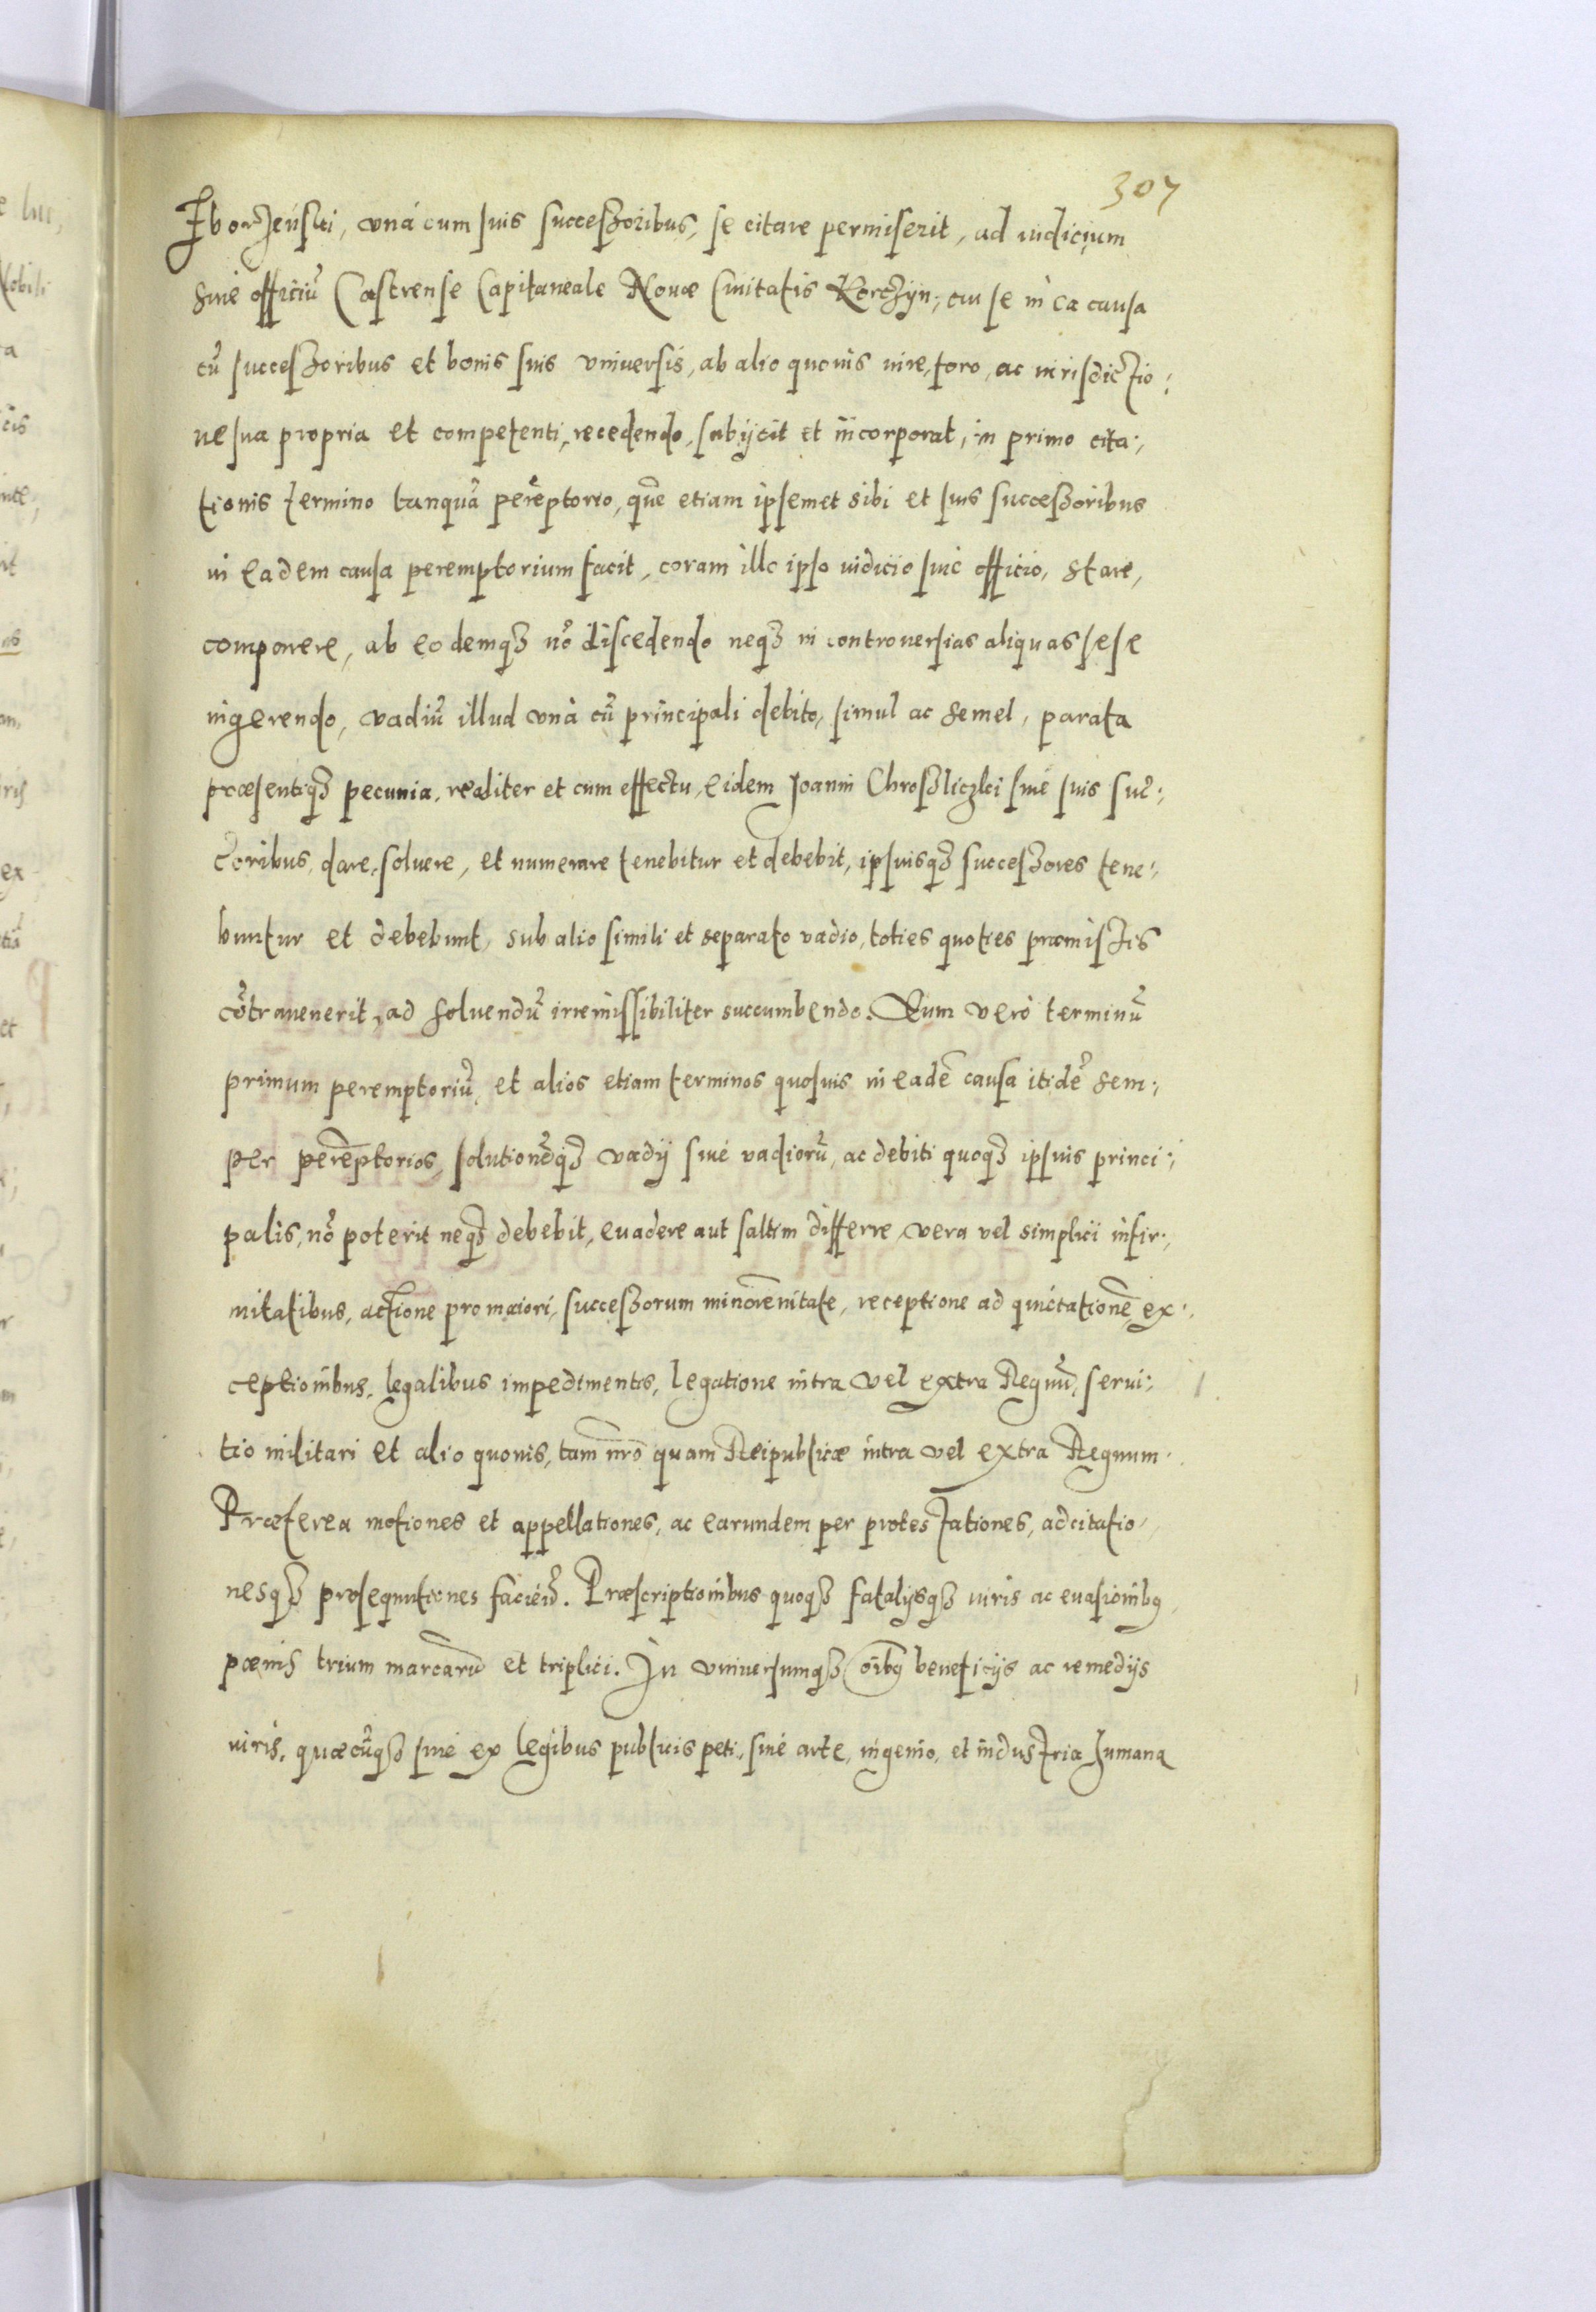 307
Zborzenski, vnà cum suis successoribus, se citare permiserit, ad iudicium
siue officiũ Castrense Capitaneale Nouæ Ciuitatis Korczyn, cui se in ea causa
cũ successoribus et bonis suis vniuersis, ab alio quouis iure, foro, ac iurisdictio:
ne sua propria et competenti, recedendo, subijcit et incorporat, in primo cita:
tionis termino tanquã perẽptorio, quẽ etiam ipsemet sibi et suis successoribus
in eadem causa peremptorium facit, coram illo ipso iudicio siue officio, stare,
comparere, ab eodemqȝ nõ discedendo neqȝ in controuersias aliquas sese
ingerendo, vadiũ illud vnà cũ principali debito, simul ac semel, parata
præsentiqȝ pecunia, realiter et cum effectu, eidem Joanni Chroszliczki siue suis suc:
c̃oribus, dare, soluere, et numerare tenebitur et debebit, ipsiusqȝ successores tene:
buntur et debebunt, sub alio simili et separato vadio, toties quoties præmissis
cõtrauenerit, ad soluendũ irremissibiliter succumbendo. Eum verò terminũ
primum peremptoriũ, et alios etiam terminos quosuis in eadẽ causa itidẽ sem:
per perẽptorios, solutionẽqȝ vadij siue vadiorũ, ac debiti quoqȝ ipsius princi:
palis, nõ poterit neqȝ debebit, euadere aut saltim differre, vera vel simplici infir:
mitatibus, actione pro maiori, successorum minorẽnitate, receptione ad quictationẽ, ex:
ceptionibus, legalibus impedimentis, legatione intra vel extra Regnũ, serui:
tio militari et alio quouis, tam nr̃o quam Reipublicæ intra vel extra Regnum.
Præterea motiones et appellationes, ac earundem per protestationes, ad citatio
nesqȝ prosequutiones faciẽd. Præscriptionibus quoqȝ fatalijsqȝ iuris ac euasionibꝰ
pœnis trium marcarũ et triplici. In vniuersumqȝ oĩbꝰ beneficijs ac remedijs
iuris, quæcũqȝ siue ex legibus publicis peti, siue arte, ingenio, et industria humana